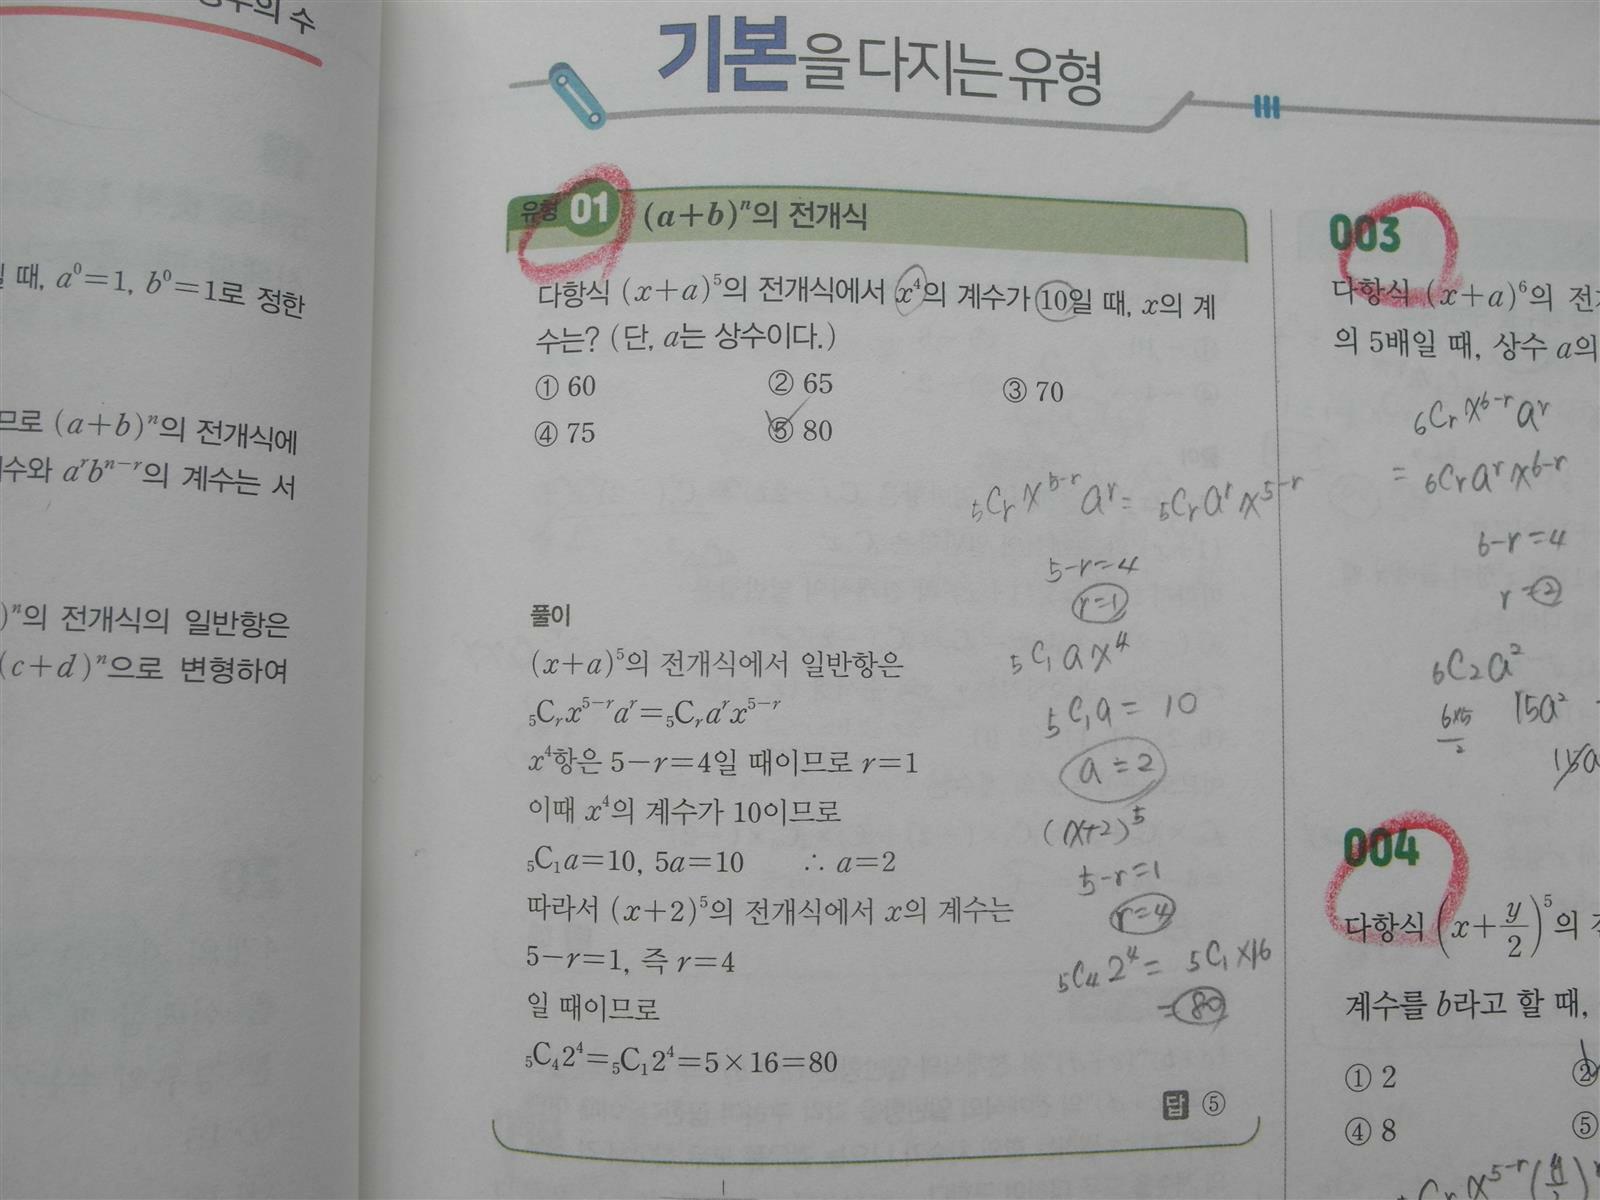 의 수
일 때, a⁰=1, b⁰=1로 정한
므로 (a+b)ⁿ의 전개식에
계수와 aʳbⁿ⁻ʳ의 계수는 서
)ⁿ의 전개식의 일반항은
(c+d)ⁿ으로 변형하여
기본을 다지는 유형
유형 01 (a+b)ⁿ의 전개식
다항식 (x+a)⁵의 전개식에서 x⁴의 계수가 10일 때, x의 계
수는? (단, a는 상수이다.)
① 60 ② 65 ③ 70
④ 75 ⑤ 80
₅Cᵣ x⁵⁻ʳ aʳ = ₅Cᵣ aʳ x⁵⁻ʳ
5-r=4
r=1
₅C₁ a x⁴
₅C₁a = 10
a=2
(x+2)⁵
5-r=1
r=4
₅C₄ 2⁴ = ₅C₁×16
=80
풀이
(x+a)⁵의 전개식에서 일반항은
₅Cᵣx⁵⁻ʳaʳ=₅Cᵣaʳx⁵⁻ʳ
x⁴항은 5-r=4일 때이므로 r=1
이때 x⁴의 계수가 10이므로
₅C₁a=10, 5a=10 ∴ a=2
따라서 (x+2)⁵의 전개식에서 x의 계수는
5-r=1, 즉 r=4
일 때이므로
₅C₄2⁴=₅C₁2⁴=5×16=80
답 ⑤
003
다항식 (x+a)⁶의 전
의 5배일 때, 상수 a의
₆Cᵣ x⁶⁻ʳ aʳ
= ₆Cᵣ aʳ x⁶⁻ʳ
6-r=4
r=2
₆C₂a²
6×5/2 15a²
15a
004
다항식 (x+y/2)⁵의 전
계수를 b라고 할 때,
① 2 ②
④ 8 ⑤
₅Cᵣ x⁵⁻ʳ (y/2)